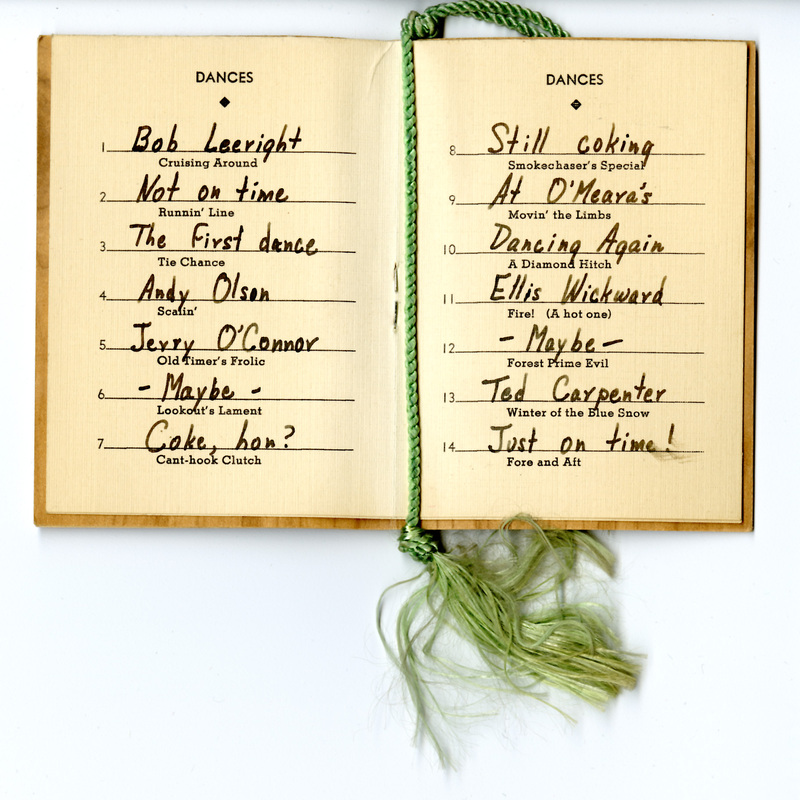 DANCES
1 Bob Leeright
Cruising Around
2 Not on time
Runnin' Line
3 The First dance
Tie Chance
4 Andy Olson
Scalin'
5 Jerry O'Connor
Old Timer's Frolic
6 - Maybe -
Lookout's Lament
7 Coke, hon?
Cant-hook Clutch
DANCES
8 Still coking
Smokechaser's Special
9 At O'Meara's
Movin' the Limbs
10 Dancing Again
A Diamond Hitch
11 Ellis Wickward
Fire! (A hot one)
12 - Maybe -
Forest Prime Evil
13 Ted Carpenter
Winter of the Blue Snow
14 Just on time!
Fore and Aft